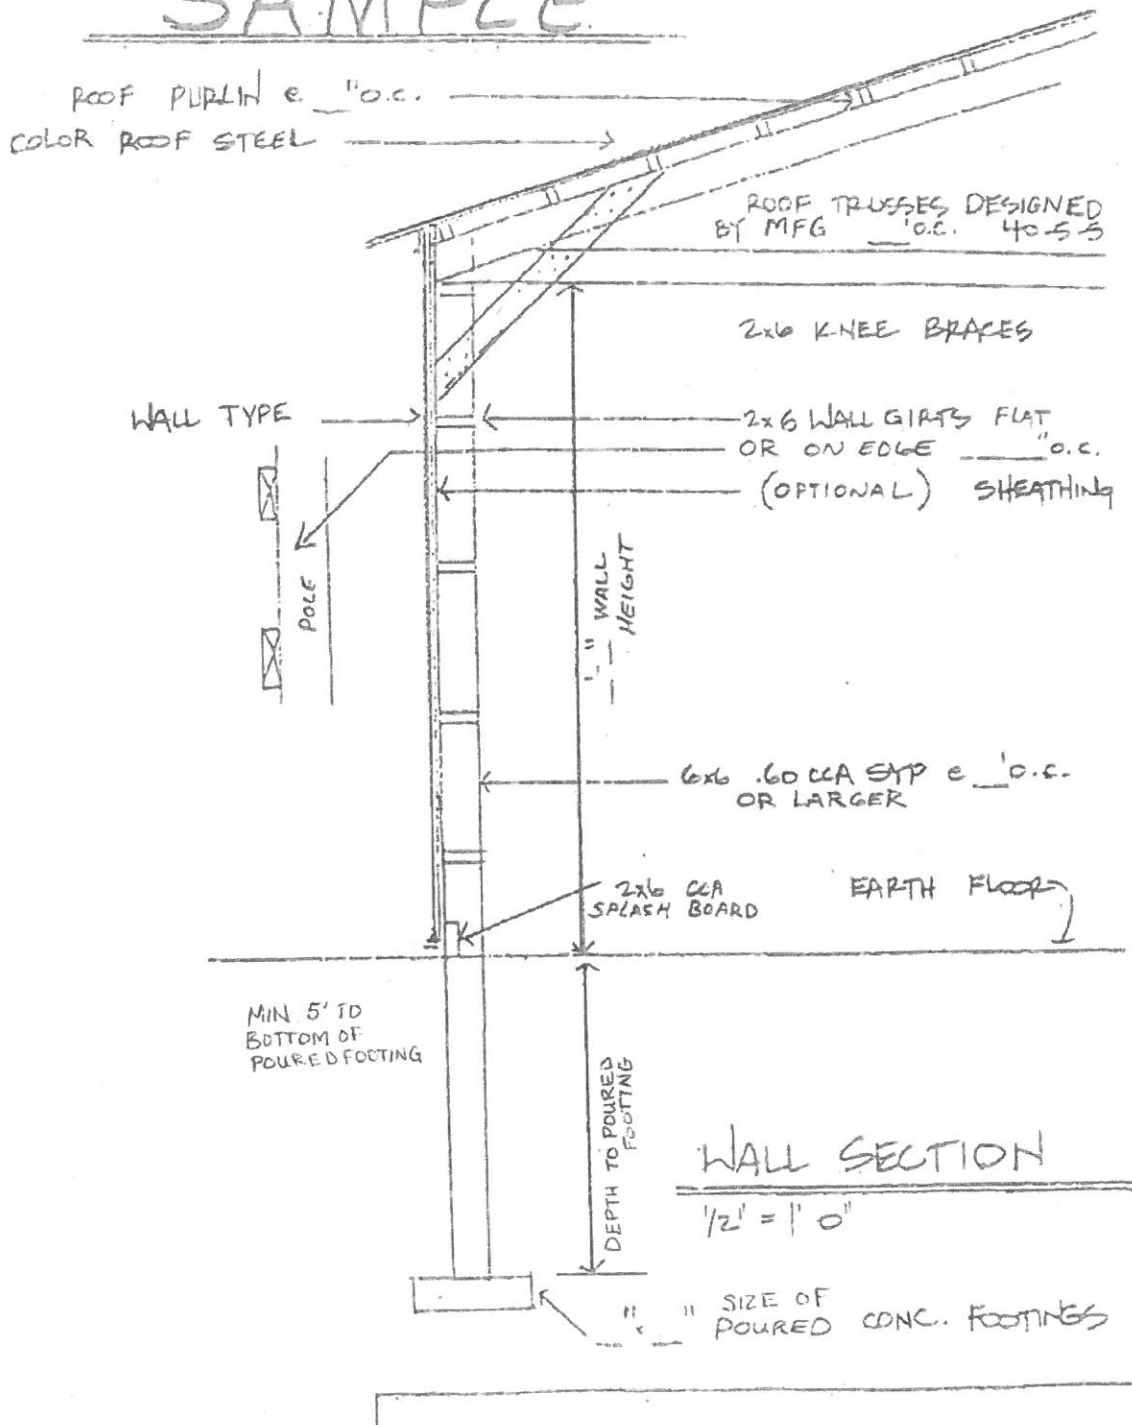 SAMPLE
ROOF PURLIN @ __"O.C.
COLOR ROOF STEEL
ROOF TRUSSES DESIGNED
BY MFG __'O.C. 40-5-5
2x6 KNEE BRACES
WALL TYPE
2x6 WALL GIRTS FLAT
OR ON EDGE ____"O.C.
(OPTIONAL) SHEATHING
POLE
__'__" WALL
HEIGHT
6x6 .60 CCA SYP @ __'O.C.
OR LARGER
2x6 CCA
SPLASH BOARD
EARTH FLOOR
MIN 5' TO
BOTTOM OF
POURED FOOTING
DEPTH TO POURED
FOOTING
WALL SECTION
1/2' = 1' 0"
__"x__" SIZE OF
POURED CONC. FOOTINGS